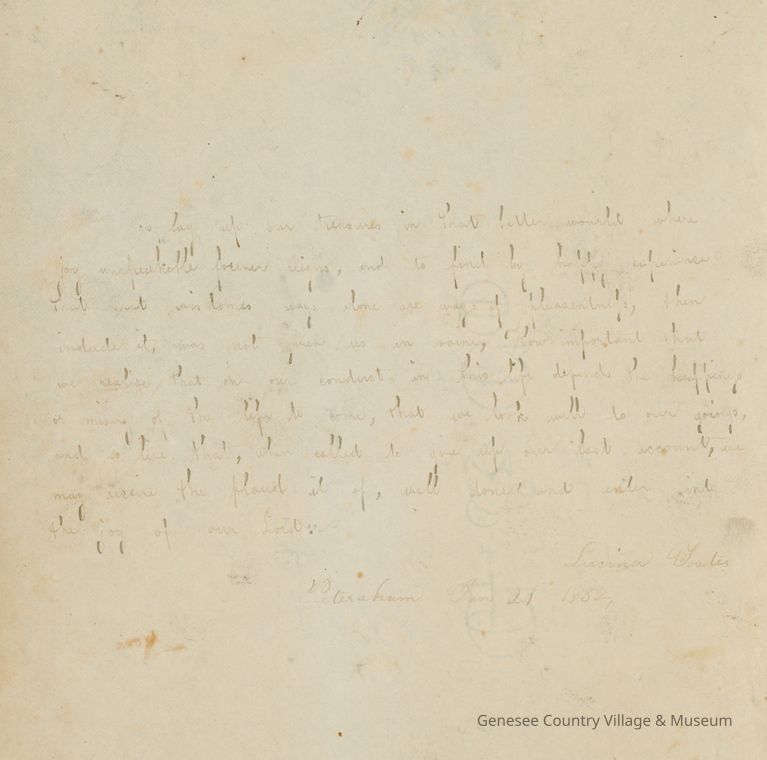 to lay up our treasures in that better would where
joy unspeakable forever reigns, and to find by happy experience
that wisdomes ways alone are ways of pleasentness, then
indeed it, was not given us in vaine, how important that
we realise that on our conduct in this life depends the happiness
or misery of the life to come, that we look well to our goings,
and so live that, when called to give up our last account, we
may receive the plaudit of, well done and enter into
the joy of our Lord
Lavina
Petersham Jan 21 1832,
Genesee Country Village & Museum